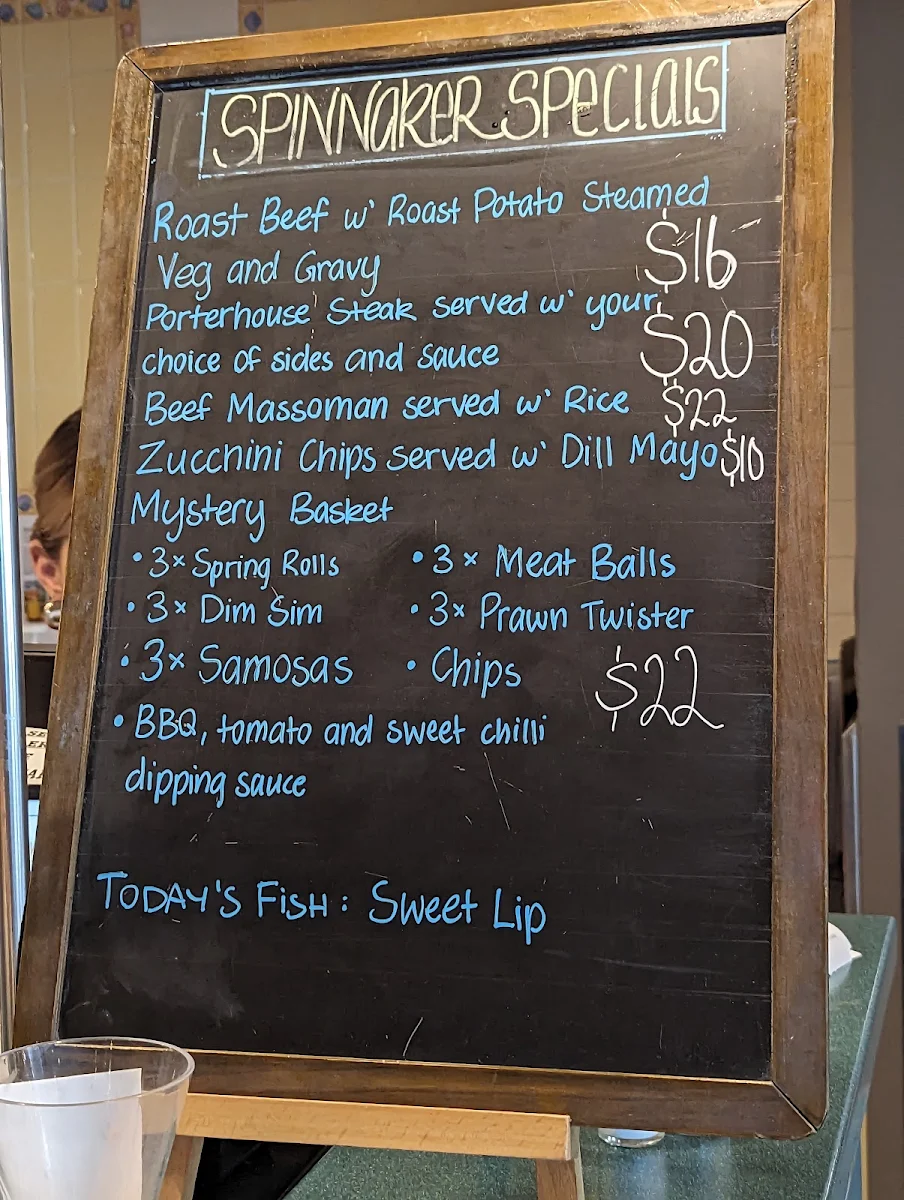 SPINNAKER SPECIALS
Roast Beef w' Roast Potato Steamed
Veg and Gravy $16
Porterhouse Steak served w' your
choice of sides and sauce $20
Beef Massoman served w' Rice $22
Zucchini Chips served w' Dill Mayo $10
Mystery Basket
• 3x Spring Rolls • 3x Meat Balls
• 3x Dim Sim • 3x Prawn Twister
• 3x Samosas • Chips $22
• BBQ, tomato and sweet chilli
dipping sauce
TODAY'S FISH: Sweet Lip